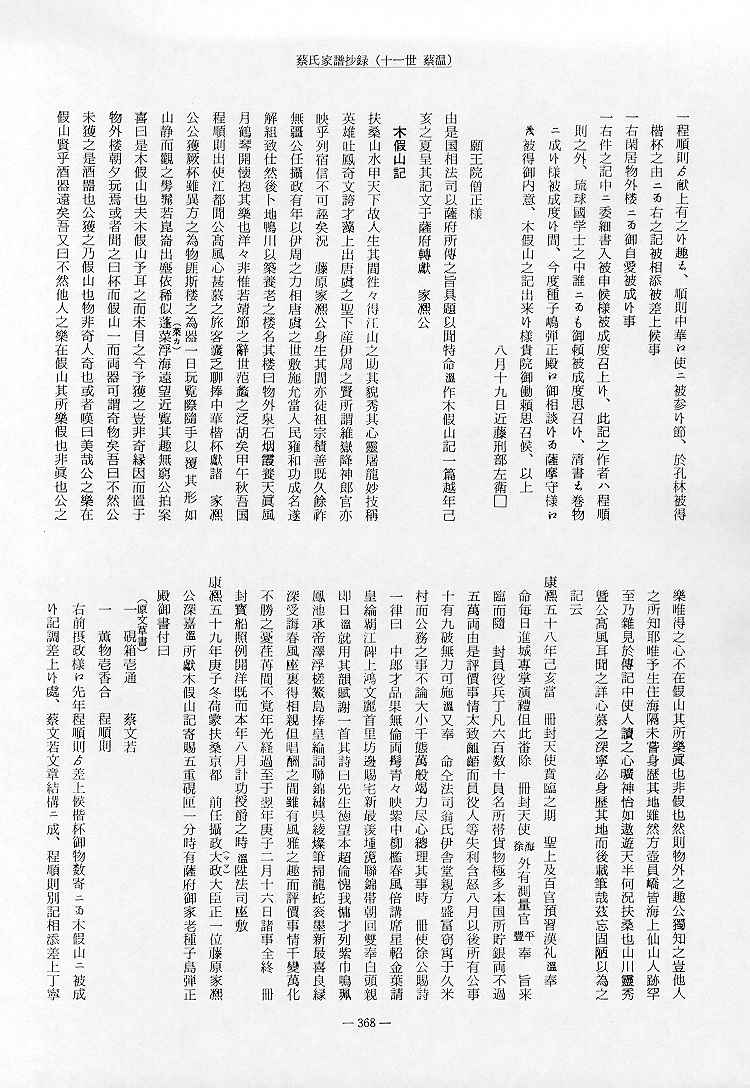 蔡氏家譜抄録（十一世 蔡温）
一程順則ゟ献上有之候趣ハ、順則中華江使ニ被参候節、於孔林被得
楷杯之由ニ而右之記被相添被差上候事
一右閑居物外楼ニ而御自愛被成候事
一右件之記中ニ委細書入被申候様被成度召上候、此記之作者ハ程順
則之外、琉球國学士之中誰ニ而も御頼被成度思召候、清書ハ巻物
ニ成候様被成度候間、今度種子嶋弾正殿江御相談候而薩摩守様江
茂被得御内意、木假山之記出来候様貴院御働頼思召候、以上
八月十九日近藤刑部左衛□
願王院僧正様
由是国相法司以薩府所傳之旨具題以聞特命温作木假山記一篇越年己
亥之夏呈其記文于薩府轉獻　家凞公
木假山記
扶桑山水甲天下故人生其間徃々得江山之助其貌秀其心靈屠龍妙技稱
英雄吐鳳奇文誇才藻上出唐虞之聖下産伊周之賢所謂維嶽降神郎官亦
映乎列宿信不可誣矣況　藤原家凞公身生其間亦徒祖宗積善既久餘祚
無疆公任攝政有年以伊周之力相唐虞之世敷施允當人民雍和功成名遂
解組致仕然後卜地鴨川以築養老之楼名其楼曰物外泉石烟霞養天眞風
月鶴琴開懐抱其樂也洋々非惟若靖節之辭世范蠡之泛胡矣甲午秋吾国
程順則出使江都聞公高風心甚慕之旅客嚢乏聊捧中華楷杯獻諸　家凞
公公獲厥杯雖異方之為物匪斯楼之為器一日玩覧際隨手以覆其形如
山静而觀之髣髴若崑崙出塵依稀似蓬菜（萊カ）浮海遠望近覧其趣無窮公拍案
喜曰是木假山也夫木假山予耳之而未目之今予獲之豈非奇縁因而置于
物外楼朝夕玩焉或者聞之曰杯而假山一而両器可謂奇物矣吾曰不然公
未獲之是酒器也公獲之乃假山也物非奇人奇也或者嘆曰美哉公之樂在
假山賢乎酒器遠矣吾又曰不然他人之樂在假山其所樂假也非眞也公之
樂唯得之心不在假山其所樂眞也非假也然則物外之趣公獨知之豈他人
之所知耶唯予生住海隔未嘗身歴其地雖然方壺員嶠皆海上仙山人跡罕
至乃雜見於傳記中使人讀之心曠神怡如遨遊天半何況扶桑也山川靈秀
曁公高風耳聞之詳心慕之深寧必身歴其地而後載筆哉茲忘固陋以為之
記云
康凞五十八年己亥當　冊封天使賁臨之期　聖上及百官預習漢礼温奉
命毎日進城専掌演禮但此番除　冊封天使海徐外有測量官平豊奉　旨来
臨而隨　封員役兵丁凡六百数十員名所帯貨物極多本国所貯銀両不過
五萬両由是評價事情太致齟齬而員役人等失利含怒八月以後所有公事
十有九破無力可施温又奉　命仝法司翁氏伊舎堂親方盛富窃寓于久米
村而公務之事不論大小千態萬般竭力尽心總理其事時　冊使徐公賜詩
一律曰　中郎才品果無倫両髩青々映紫巾御檻春風倍講席星軺金葉請
皇綸覇江碑上鴻文麗首里坊邊賜宅新最羨堹箎聯錦帯朝回雙奉白頭親
即日温就用其韻賦謝一首其詩曰先生徳望本超倫愧我慵才列紫巾鳴珮
鳳池承帝澤浮槎鰲島捧皇綸詞聯錦繍呉綾燦筆掃龍蛇翁墨新最喜良縁
深受誨春風座裏得相親但唱酬之間雖有風雅之趣而評價事情千變萬化
不勝之憂荏苒間不覚年光経過至于翌年庚子二月十六日諸事全終　冊
封寶船照例開洋既而本年八月計功授爵之時温陞法司座敷
康凞五十九年庚子冬荷蒙扶桑京都　前任攝政大（ママ）政大臣正一位藤原家凞
公深嘉温所獻木假山記寄賜五重硯匣一分時有薩府御家老種子島弾正
殿御書付曰
（原文草書）
一　硯箱壱通　　蔡文若
一　薫物壱香合　程順則
右前摂政様江先年程順則ゟ差上候楷杯御物数寄ニ而木假山ニ被成
候記調差上候處、蔡文若文章結構ニ成、程順則別記相添差上丁寧
― 368 ―